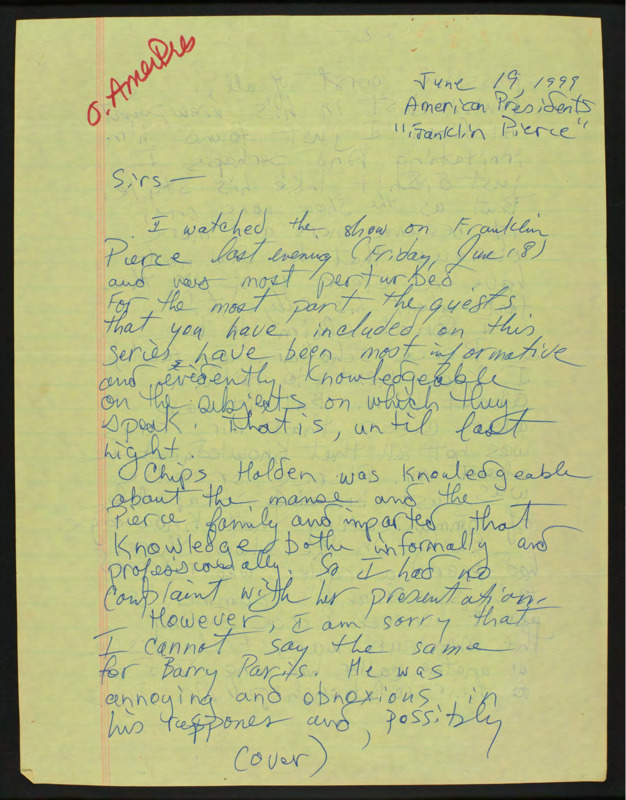 O. AmerPres
June 19, 1999
American Presidents
"Franklin Pierce"
Sirs —
I watched the show on Franklin
Pierce last evening (Friday, June 18)
and was most perturbed.
For the most part the guests
that you have included on this
series have been most informative
and evidently knowledgeable
on the subjects on which they
speak. That is, until last
night.
Chips Holden was knowledgeable
about the manse and the
Pierce family and imparted that
knowledge bothe informally and
professionally. So I had no
complaint with her presentation.
However, I am sorry that
I cannot say the same
for Barry Paris. He was
annoying and obnoxious in
his and, possibly
(over)